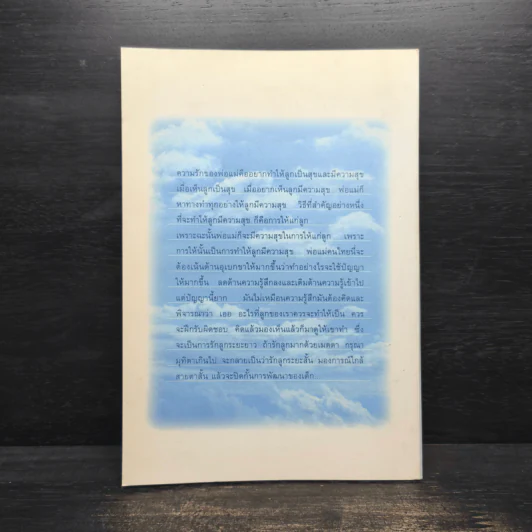 ความรักของพ่อแม่คืออยากทำให้ลูกเป็นสุขและมีความสุข
เมื่อเห็นลูกเป็นสุข เมื่ออยากเห็นลูกมีความสุข พ่อแม่ก็
หาทางทำทุกอย่างให้ลูกมีความสุข วิธีที่สำคัญอย่างหนึ่ง
ที่จะทำให้ลูกมีความสุข ก็คือการให้แก่ลูก
เพราะฉะนั้นพ่อแม่ก็จะมีความสุขในการให้แก่ลูก เพราะ
การให้นั้นเป็นการทำให้ลูกมีความสุข พ่อแม่คนไทยนี่จะ
ต้องเน้นด้านอุเบกขาให้มากขึ้นว่าทำอย่างไรจะใช้ปัญญา
ให้มากขึ้น ลดด้านความรู้สึกลงและเติมด้านความรู้เข้าไป
แต่ปัญญานี้ยาก มันไม่เหมือนความรู้สึกมันต้องคิดและ
พิจารณาว่า เออ อะไรที่ลูกของเราควรจะทำให้เป็น ควร
จะฝึกรับผิดชอบ คิดแล้วมองเห็นแล้วก็มาดูให้เขาทำ ซึ่ง
จะเป็นการรักลูกระยะยาว ถ้ารักลูกมากด้วยเมตตา กรุณา
มุทิตาเกินไป จะกลายเป็นว่ารักลูกระยะสั้น มองการณ์ใกล้
สายตาสั้น แล้วจะปิดกั้นการพัฒนาของเด็ก